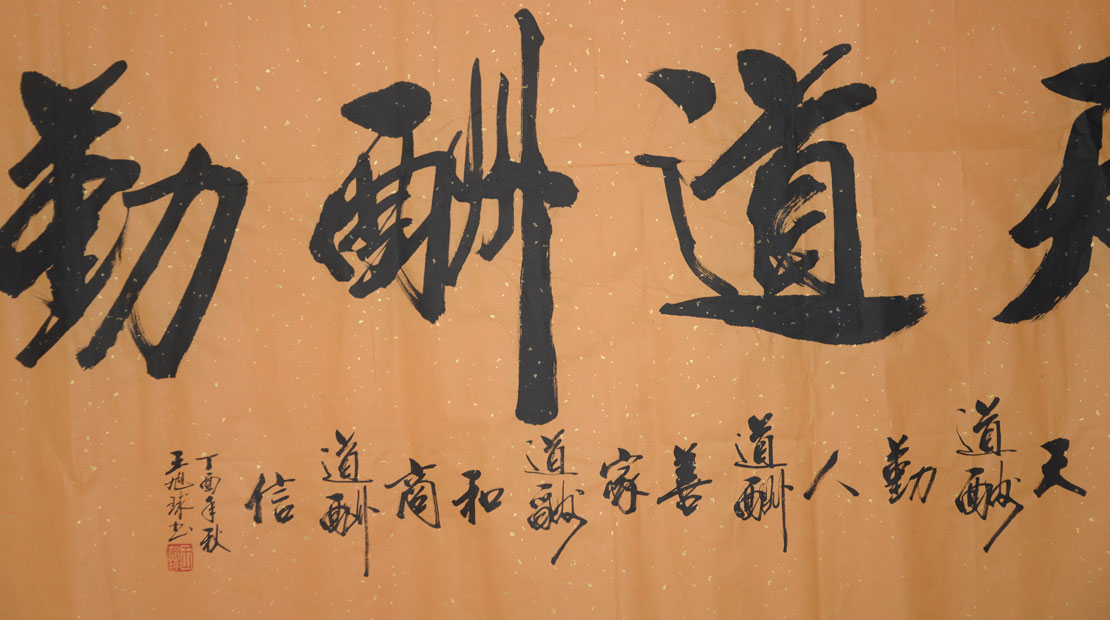 天道酬勤
天道酬勤人道酬善家道酬和商道酬信
丁酉年秋
王旭球书